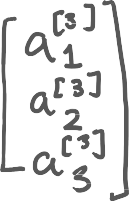 a₁^[3]
a₂^[3]
a₃^[3]